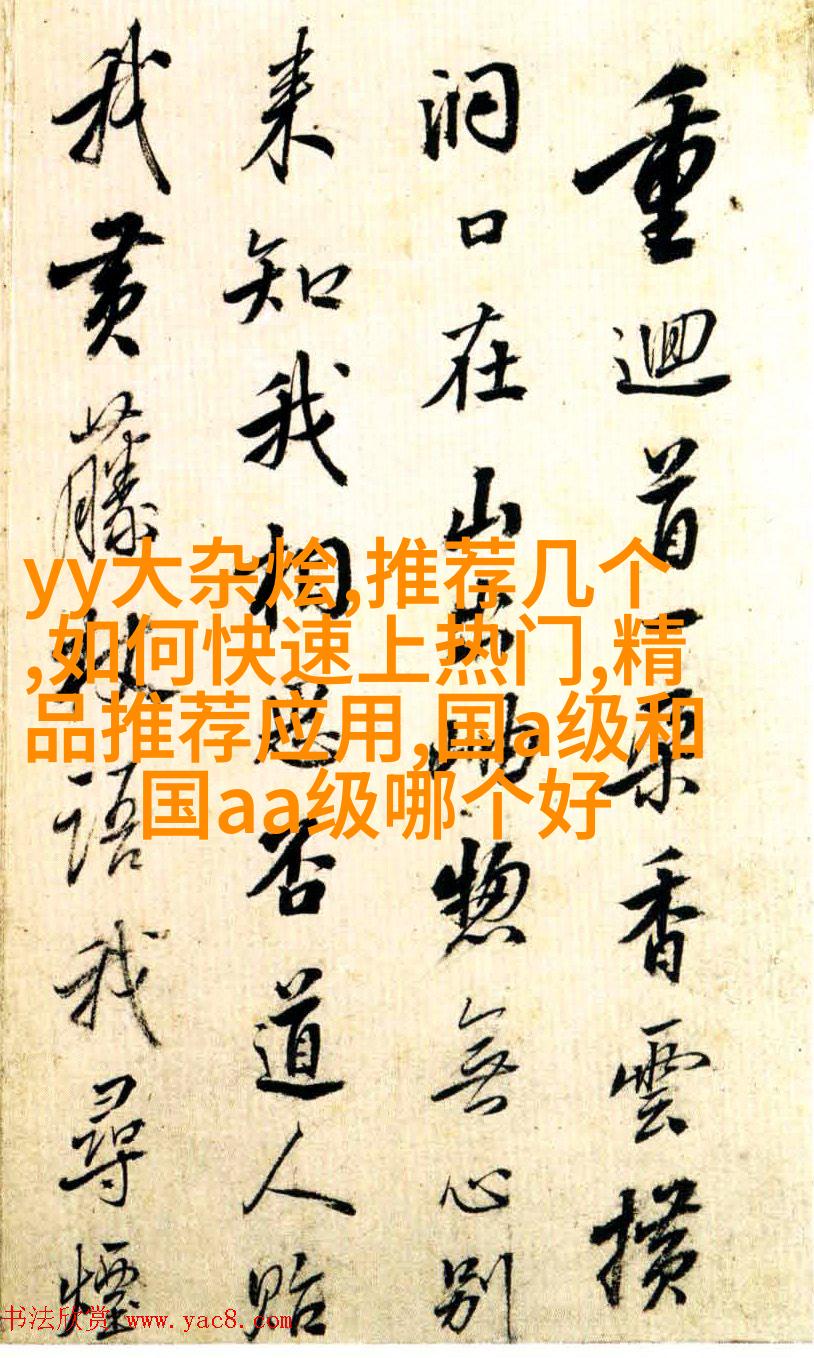 重迴首一香雲
洞口在山惣無心别
来知我相思否道人貽
我黄藤杖語我尋煙
yy大杂烩,推荐几个
,如何快速上热门,精
品推荐应用,国a级和
国aa级哪个好
书法欣赏 www.yac8.com